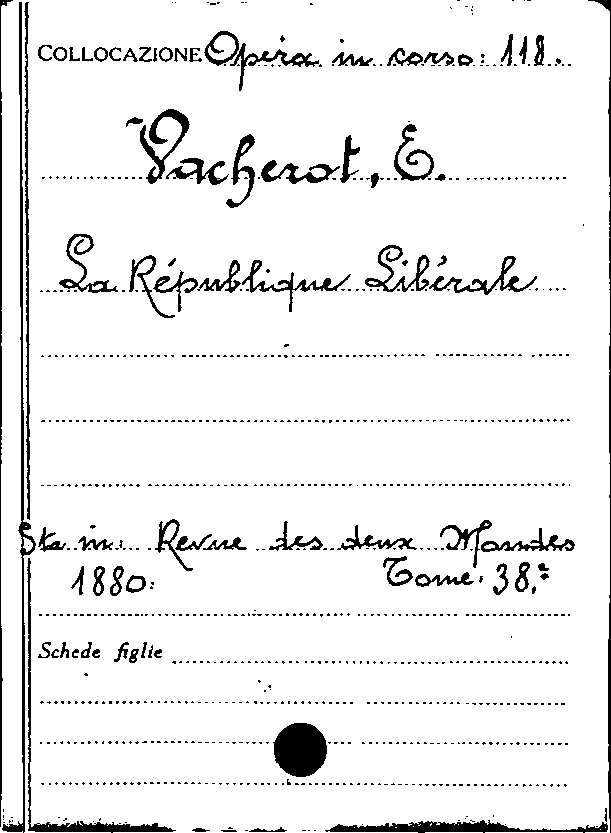 COLLOCAZIONE Opera in corso: 118.
Vacherot, E.
La République Libérale
Sta in: Revue des deux Mondes
1880. Tome. 38.e
Schede figlie